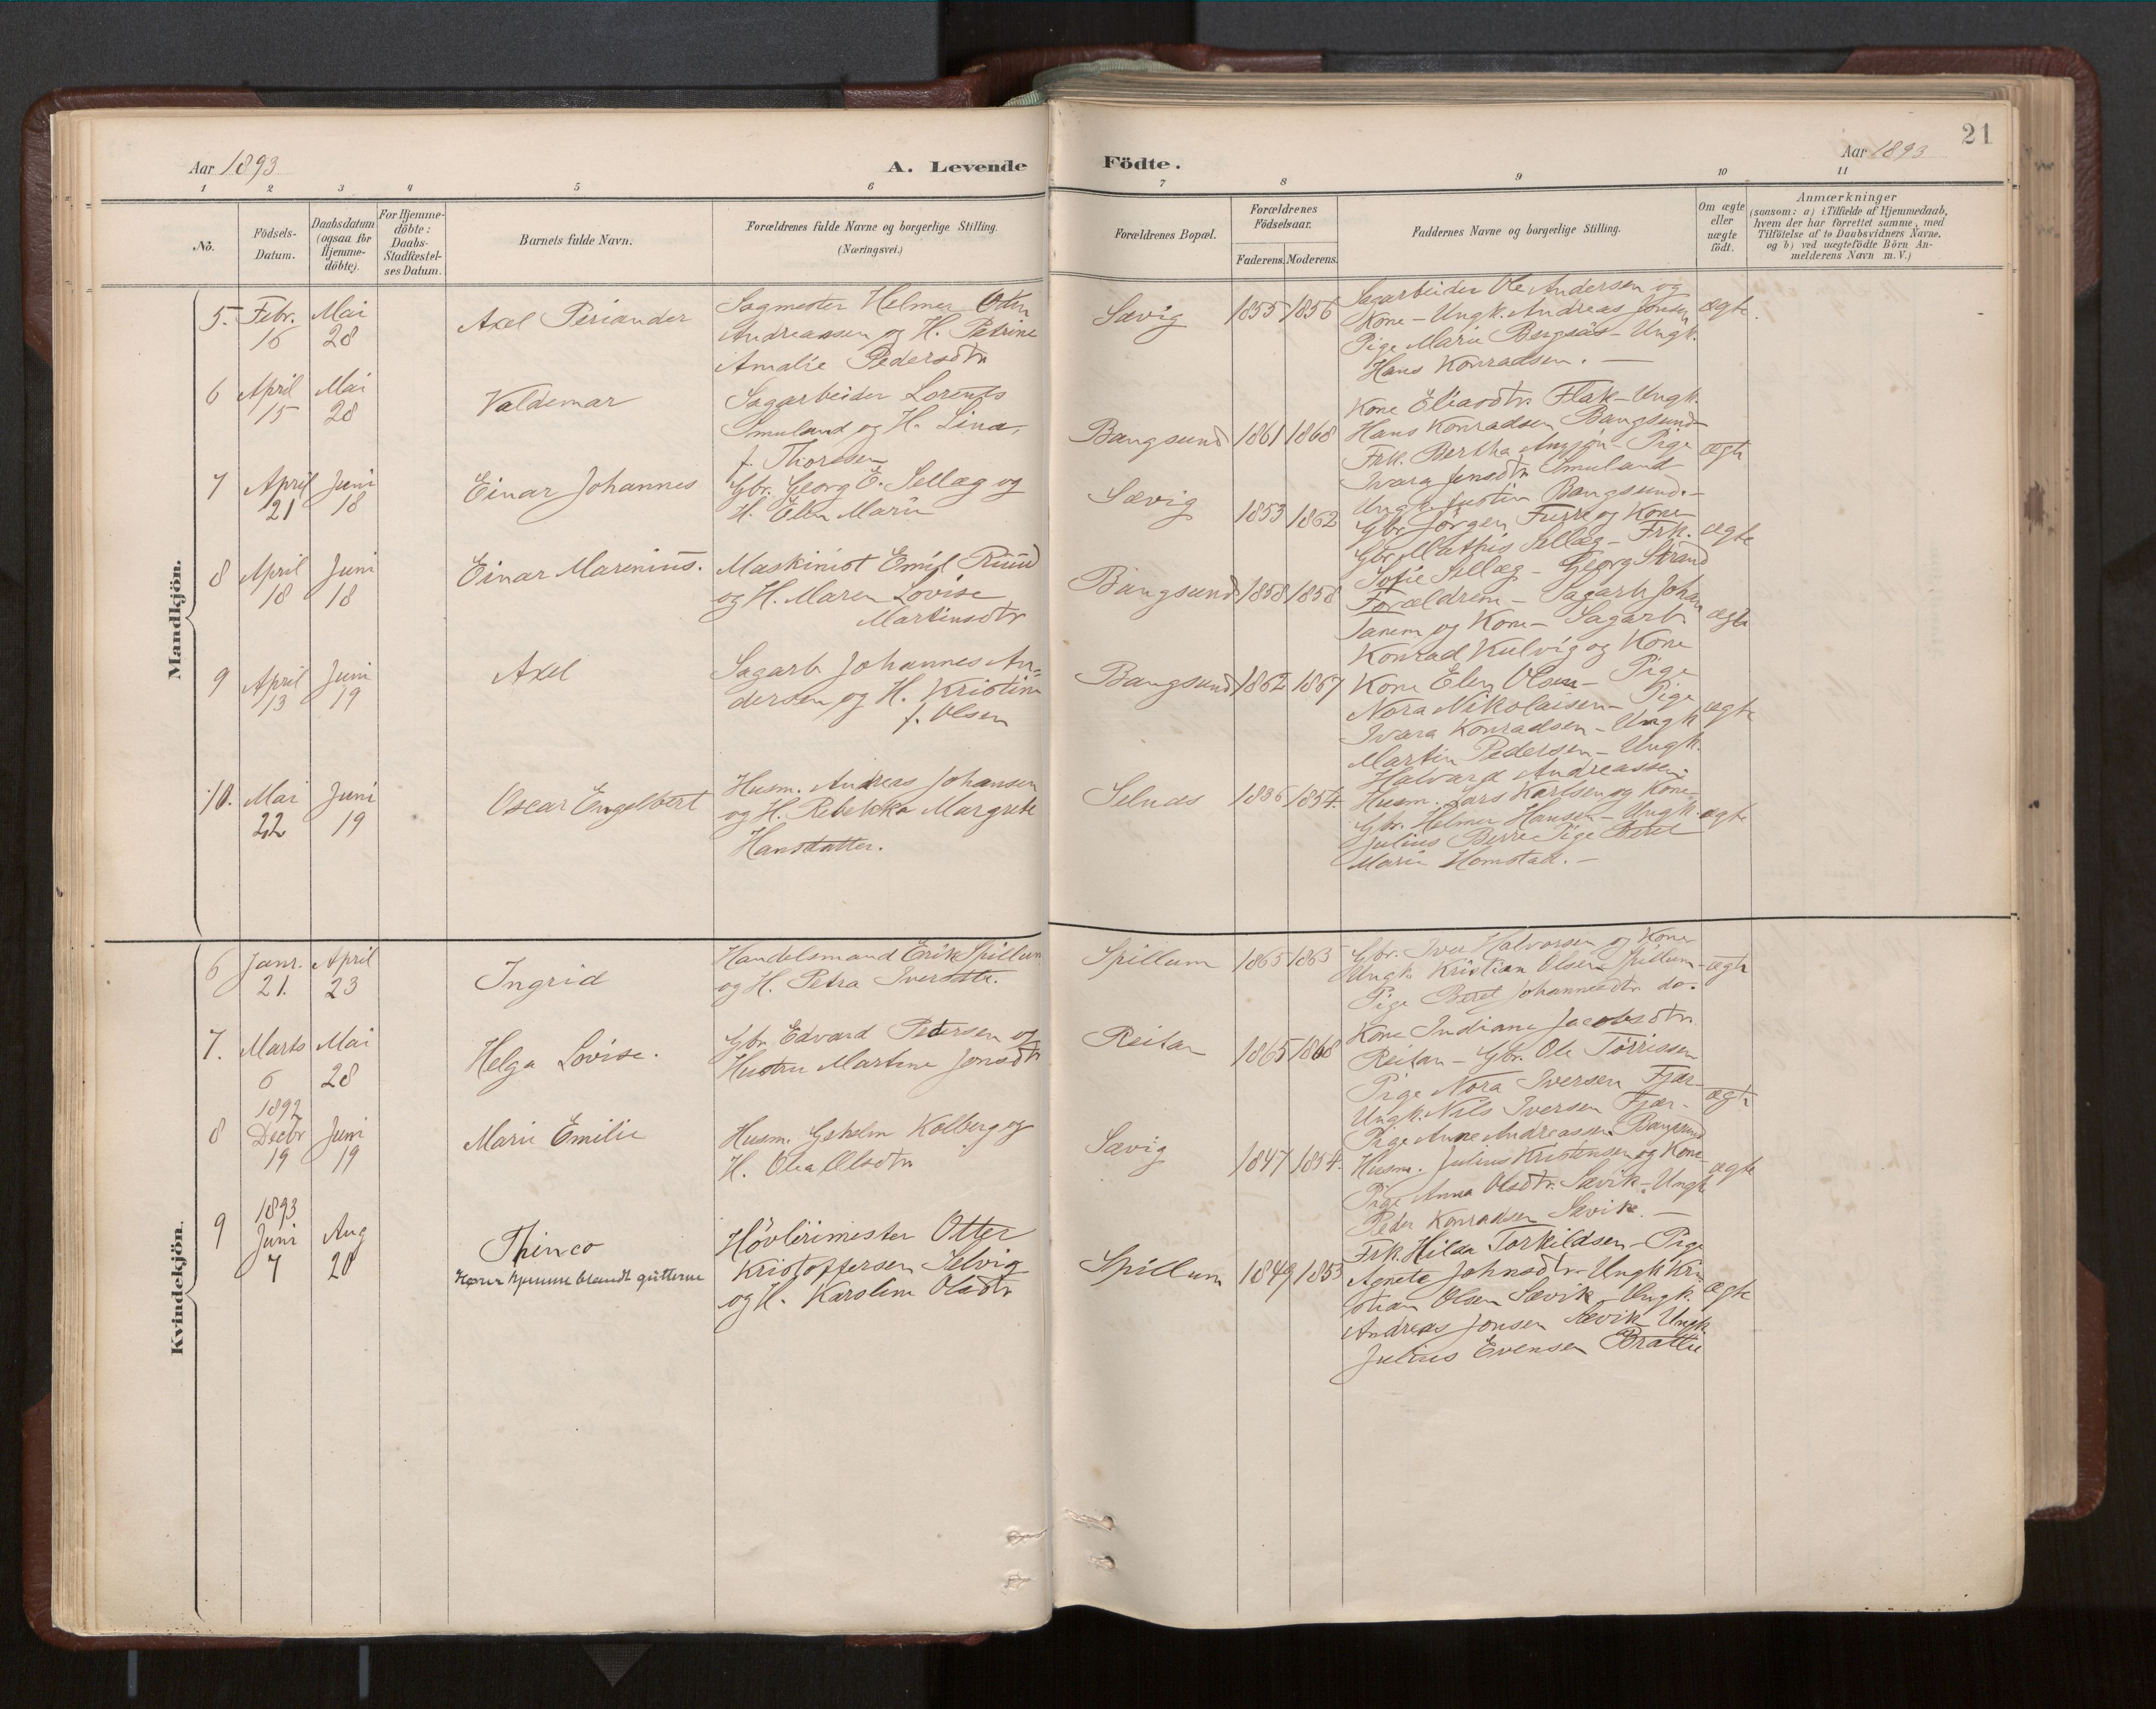 21
Aar 1893
A. Levende
Födte.
Aar 1893
1 2 3 4 5 6 7 8 9 10 11
No.
Födsels-
Datum.
Daabsdatum
(ogsaa for
Hjemme-
döbte).
For Hjemme-
döbte:
Daabs-
Stadfæstel-
ses Datum.
Barnets fulde Navn.
Forældrenes fulde Navne og borgerlige Stilling.
(Næringsvei.)
Forældrenes Bopæl.
Forældrenes
Födselsaar.
Faderens.
Moderens.
Faddernes Navne og borgerlige Stilling.
Om ægte
eller
uægte
födt.
Anmærkninger
(saasom: a) i Tilfælde af Hjemmedaab,
hvem der har forrettet samme, med
Tilföielse af to Daabsvidners Navne.
og b) ved uægtefödte Börn An-
melderens Navn m. V.)
Mandkjön.
5. Febr. 16 Mai 28
Axel Periander
Sagmester Helmer Odin
Andreassen og H. Petrine
Amalie Pedersdtr
Sævig
1855 1856
Sagarbeider Ole Andersen og
Kone - Ungk. Andreas Jonsen
Pige Marie Bergsås - Ungk.
Hans Konradsen. -
ægte.
6 April 15 Mai 28
Valdemar
Sagarbeider Lorents
Smuland og H. Lina,
f. Thoresen
Bangsund
1861 1868
Kone Eliasdtr. Flak - Ungk.
Hans Konradsen Bangsund
Frk. Bertha - Pige
Ivara Jensdtr Smuland
Ungk. Justin Bangsund. -
ægte
7 April 21 Juni 18
Einar Johannes
Gbr. Georg E. Sellæg og
H. Elen Marie
Sævig
1853 1862
Gbr. Jörgen og Kone
Gbr. Mathis Sellæg - Frk.
Sofie Sellæg - Georg Strand
ægte
8 April 18 Juni 18
Einar Marenius.
Maskinist Emil Ruud
og H. Maren Lovise
Martinsdtr
Bangsund
1858 1858
Forældrene - Sagarb. Johan
Tanem og Kone - Sagarb.
Konrad Kulvig og Kone
ægte
9 April 13 Juni 19
Axel
Sagarb Johannes An-
dersen og H. Kristine
f. Olsen
Bangsund
1862 1867
Kone Elen Olsen - Pige
Nora Nikolaisen - Pige
Ivara Konradsen - Ungk
Martin Pedersen - Ungk.
Halvard Andreassen
ægte
10. Mai 22 Juni 19
Oscar Engelbert
Husm. Andreas Johansen
og H. Rebekka Margrete
Hansdatter.
Selnæs
1836 1854.
Husm. Lars Karlsen og Kone
Gbr. Helmer Hansen - Ungk.
Julius Berre Pige Beret
Marie Homstad. -
ægte
Kvindekjön.
6 Janr. 21. April 23
Ingrid
Handelsmand Erik Spillum
og H. Petra Iversdtr.
Spillum
1865 1863
Gbr. Iver Halvorsen og Kone
Ungk Kristian Olsen Spillum -
Pige Beret Johannesdtr do.
ægte
7. Marts 6 Mai 28
Helga Lovise.
Gbr. Edvard Petersen og
Hustru Martine Jonsdtr
Reitan
1865 1868
Kone Indiane Jacobsdtr.
Reitan - Gbr. Ole Törrissen
Pige Nora Iversen Fjær -
Ungk. Nils Iversen Fjær -
Pige Anne Andreassen Bangsund
ægte
8 1892 Decbr 19 Juni 19
Marie Emilie
Husm. Kolberg og
H. Olea Olsdtr
Sævig
1847 1854.
Husm. Julius Kristensen og Kone
Pige Anna Olsdtr. Sævik - Ungk
Peder Konradsen Sævik. -
ægte
9 1893 Juni 7 Aug 20
Thinco
Hører hjemme blandt gutterne
Hövlerimester Otter
Kristoffersen Selvig
og H. Karoline Olsdtr
Spillum
1849 1853
Frk. Hilda Torkildsen - Pige
Agnete Johnsdtr - Ungk. Kri-
stian Olsen Sævik - Ungk.
Andreas Jonsen Sævik Ungk
Julius Evensen Brattli
ægte